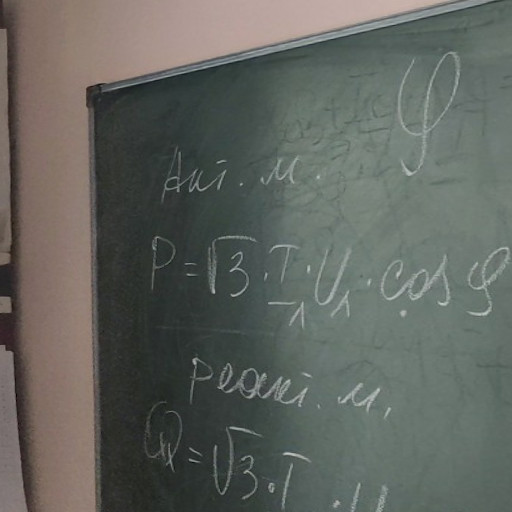 φ
Акт. м.
P = √3 · I₁ · U₁ · cos φ
реакт. м.
Q = √3 · I · U